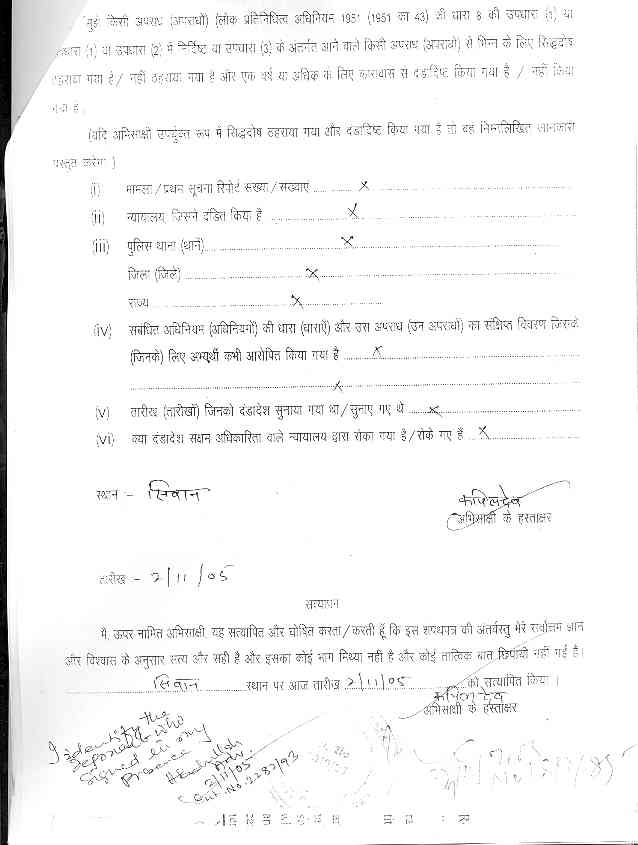 मुझे किसी अपराध (अपराधों) (लोक प्रतिनिधित्व अधिनियम 1951 (1951 का 43) की धारा 8 की उपधारा (1) या
उपधारा (1) या उपधारा (2) में निर्दिष्ट या उपधारा (3) के अंतर्गत आने वाले किसी अपराध (अपराधों) से भिन्न के लिए सिद्धदोष
ठहराया गया है / नहीं ठहराया गया है और एक वर्ष या अधिक के लिए कारावास से दंडादिष्ट किया गया है / नहीं किया
गया है।
(यदि अभिसाक्षी उपर्युक्त रूप में सिद्धदोष ठहराया गया और दंडादिष्ट किया गया है तो वह निम्नलिखित जानकारी
प्रस्तुत करेगा)
(i) मामला / प्रथम सूचना रिपोर्ट संख्या / संख्याएं ......... x .........
(ii) न्यायालय, जिसने दंडित किया है ......... x .........
(iii) पुलिस थाना (थाने) ......... x .........
जिला (जिले) ......... x .........
राज्य ......... x .........
(iv) संबंधित अधिनियम (अधिनियमों) की धारा (धाराएँ) और उस अपराध (उन अपराधों) का संक्षिप्त विवरण जिसके
(जिनके) लिए अभ्यर्थी कभी आरोपित किया गया है ......... x .........
......... x .........
(v) तारीख (तारीखों) जिनको दंडादेश सुनाया गया था / सुनाए गए थे ......... x .........
(vi) क्या दंडादेश सक्षम अधिकारिता वाले न्यायालय द्वारा रोका गया है / रोके गए हैं ......... x .........
स्थान - सिवान
कपिलदेव
अभिसाक्षी के हस्ताक्षर
तारीख - 2/11/05
सत्यापन
मैं, ऊपर नामित अभिसाक्षी, यह सत्यापित और घोषित करता / करती हूँ कि इस शपथपत्र की अंतर्वस्तु मेरे सर्वोत्तम ज्ञान
और विश्वास के अनुसार सत्य और सही है और इसका कोई भाग मिथ्या नहीं है और कोई तात्विक बात छिपायी नहीं गई है।
सिवान स्थान पर आज तारीख 2/11/05 को सत्यापित किया।
कपिलदेव
अभिसाक्षी के हस्ताक्षर
I identify the
deponent who
signed in my
presence
2/11/05
No. 2287/93